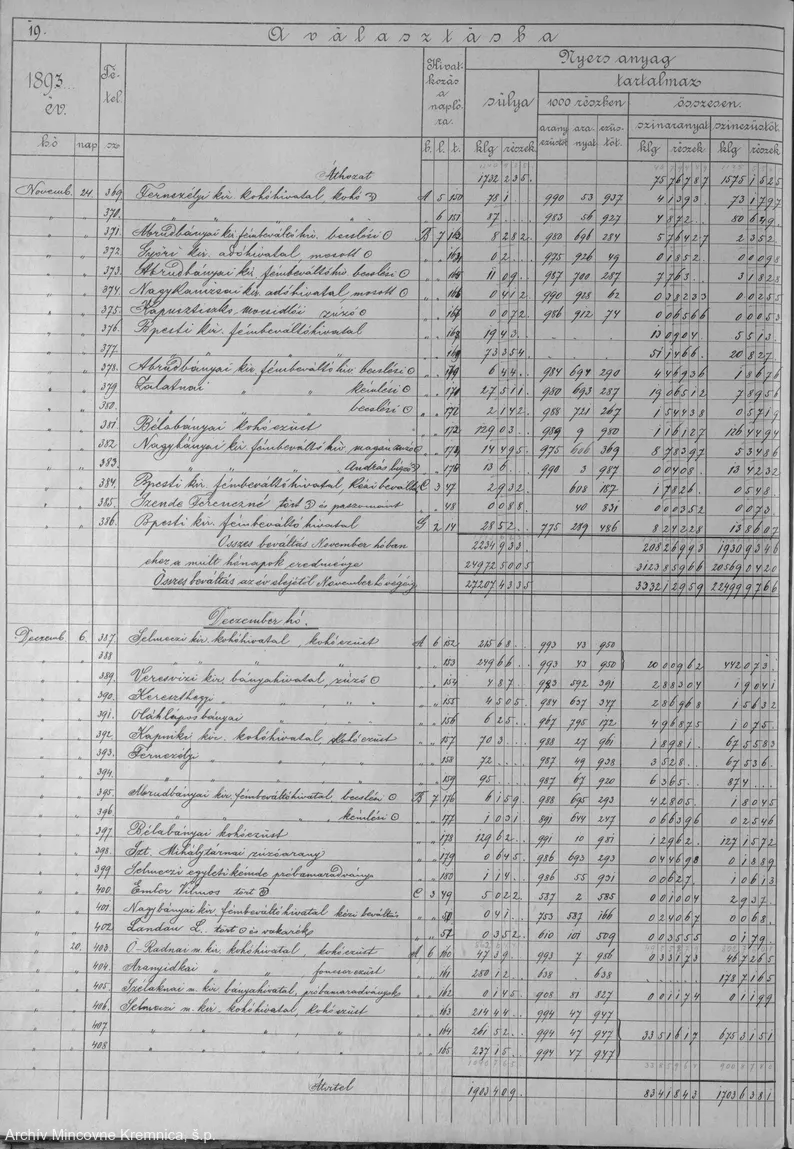 19.
A választásba
1893 év.
Tétel sz.
Hivatkozás a naplóra.
Nyers anyag
súlya
tartalmaz
1000 részben
összesen.
arany ezüstöt. aranyat. ezüstöt.
színaranyat színezüstöt.
hó nap b. l. t. klg részek klg részek klg részek
Áthozat 1732 235. 75 76787 1575 1525
Novemb. 24. 369. Fernezélyi kir. kohóhivatal kohó A 5 150 781 990 53 937 41393 731797
" " 370. " " " 6 151 87 983 56 927 4872 80649
" " 371. Abrudbányai kir. fémbeváltó hiv. becslési B 7 163 8282 980 696 284 576427 2352
" " 372. Győri kir. adóhivatal, mosott 02 975 926 49 01852 00098
" " 373. Abrudbányai kir. fémbeváltó hiv. becslési " " 165 1109 987 700 287 7763 31828
" " 374. Nagykanizsai kir. adóhivatal, mosott " " 166 0412 990 928 62 038233 00255
" " 375. zúzó 0072 986 912 74 006566 00053
" " 376. Bpesti kir. fémbeváltóhivatal " " 168 1943 130904 5513
" " 377. " " " " " 169 73354 511466 20827
" " 378. Abrudbányai kir. fémbeváltó hiv. becslési 644 984 694 290 446936 18676
" " 379. Zalatnai " " kémlési " " 170 27511 980 693 287 1906512 78956
" " 380. " " becslési " " 172 2142 988 721 267 154438 05719
" " 381. Bélabányai kohóezüst " " 172 12903 989 9 980 116127 1264494
" " 382. Nagybányai kir. fémbeváltó hiv. magán zúzó " " 173 14495 975 606 369 878397 53486
" " 383. " " " András 136 990 3 987 00408 134232
" " 384. Bpesti kir. fémbeváltóhivatal, kézi beváltás C 3 47 2932 608 187 17826 0548
" " 385. Szende Ferenczné tört és paszománt " " 48 0088 40 831 000352 0073
" " 386. Bpesti kir. fémbeváltó hivatal G 2 14 2852 775 289 486 824228 138607
Összes beváltás November hóban 2234933 20826993 19309346
ehez a múlt hónapok eredménye 249725005 312385966 205690420
Összes beváltás az év elejétől November hó végéig 272074335 333212959 224999766
Deczember hó.
Deczemb. 6. 387. Selmeczi kir. kohóhivatal, kohóezüst A 6 152 21568 993 43 950
" " 388. " " " " " " 153 24966 993 43 950 } 2000962 442073
" " 389. Veresvizi kir. bányahivatal, zúzó " " 154 487 983 592 391 288304 19041
" " 390. Kereszthegyi " " " " " 155 4505 984 637 347 286968 15632
" " 391. Oláhláposbányai " " " " 156 625 967 795 172 496875 1075
" " 392. Kapniki kir. kohóhivatal, kohóezüst " " 157 703 988 27 961 18981 675583
" " 393. Fernezélyi " " " " " 158 72 987 49 938 3528 67536
" " 394. " " " " " " 159 95 987 67 920 6365 874
" " 395. Abrudbányai kir. fémbeváltóhivatal becslési B 7 176 6159 988 695 293 42805 18045
" " 396. " " " kémlési " " 177 1031 891 644 247 066396 02546
" " 397. Bélabányai kohóezüst " " 178 12962 991 10 981 12962 1271572
" " 398. Szt. Mihálytárnai zúzóarany " " 179 0645 986 693 293 044698 01889
" " 399. Selmeczi egyleti kémde próbamaradvány " " 180 114 986 55 931 00627 10613
" " 400. Ember Vilmos tört C 3 49 5022 587 2 585 001004 2937
" " 401. Nagybányai kir. fémbeváltóhivatal kézi beváltás " " 50 041 753 587 166 024067 0068
" " 402. Landau L. tört és vakarék " " 51 0352 610 101 509 003555 0179
" 20. 403. Ó-Radnai m. kir. kohóhivatal, kohóezüst A 6 160 4739 993 7 986 033173 467265
" " 404. Aranyidkai " " foncsorezüst " " 161 28012 638 . 638 1787165
" " 405. Szélaknai m. kir. bányahivatal, próbamaradványok " " 162 0145 908 81 827 001174 01199
" " 406. Selmeczi m. kir. kohóhivatal, kohóezüst " " 163 21444 994 47 947
" " 407. " " " " " " 164 26152 994 47 947 } 3351617 6753151
" " 408. " " " " " " 165 23715 994 47 947
Átvitel 1903409 8341843 17036381
Archív Mincovne Kremnica, š.p.